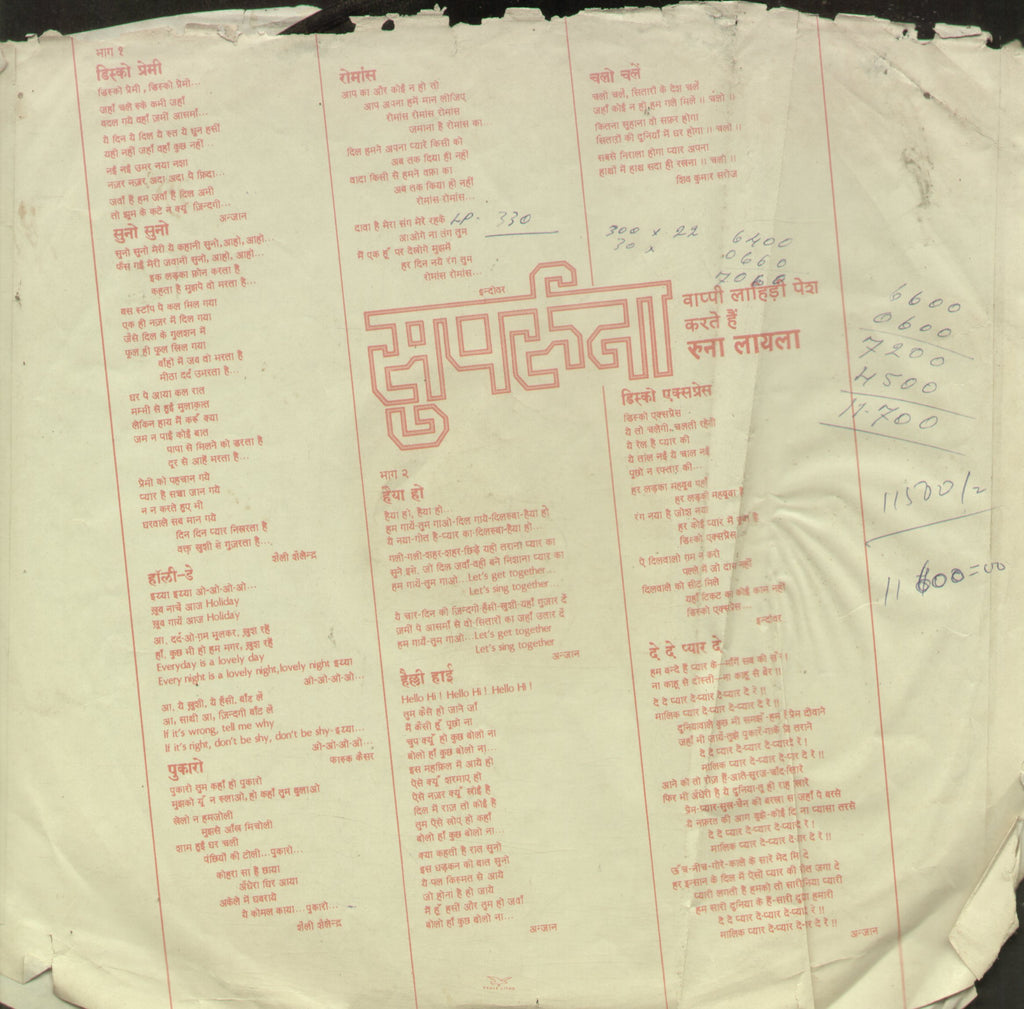 भाग १
डिस्को प्रेमी
डिस्को प्रेमी, डिस्को प्रेमी...
जहाँ चले रुके कभी जहाँ
बदल गये वहाँ ज़मीं आसमाँ...
ये दिन ये दिल ये रुत ये धुन हसीं
यही नहीं जहाँ वहाँ कुछ नहीं...
नई नई उमर नया नशा
नज़र नज़र अदा अदा पे फ़िदा...
जवाँ है हम जवाँ है दिल अभी
तो झूम के कटे न क्यूँ ज़िन्दगी...
अन्जान
सुनो सुनो
सुनो सुनो मेरी ये कहानी सुनो, आहो, आहो...
फँस गई मेरी जवानी सुनो, आहो, आहो...
इक लड़का फ़ोन करता है
कहता है मुझपे वो मरता है...
बस स्टॉप पे कल मिल गया
एक ही नज़र में दिल गया
जैसे दिल के गुलशन में
फूल ही फूल खिल गया
बाँहों में जब वो भरता है
मीठा दर्द उभरता है...
घर पे आया कल रात
मम्मी से हुई मुलाक़ात
लेकिन हाय मैं करूँ क्या
जम न पाई कोई बात
पापा से मिलने को डरता है
दूर से आहें भरता है...
प्रेमी को पहचान गये
प्यार है सच्चा जान गये
न न करते हुए भी
घरवाले सब मान गये
दिन दिन प्यार निखरता है
वक़्त खुशी से गुज़रता है...
शैली शैलेन्द्र
हॉली-डे
इय्या इय्या ओ-ओ-ओ-ओ...
ख़ूब नाचें आज Holiday
ख़ूब गायें आज Holiday
आ, दर्द-ओ-ग़म भूलकर, ख़ुश रहें
हाँ, कुछ भी हो हम मगर, ख़ुश रहें
Everyday is a lovely day
Every night is a lovely night, lovely night इय्या
ओ-ओ-ओ-ओ...
आ, ये ख़ुशी, ये हँसी, बाँट लें
आ, साथी आ, ज़िन्दगी बाँट ले
If it's wrong, tell me why
If it's right, don't be shy, don't be shy-इय्या...
ओ-ओ-ओ-ओ...
फारुक कैसर
पुकारो
पुकारो तुम कहाँ हो पुकारो
मुझको यूँ न रुलाओ, हो कहाँ तुम बुलाओ
खेलो न हमजोली
मुझसे आँख मिचोली
शाम हुई घर चली
पंछियों की टोली...पुकारो...
कोहरा सा है छाया
अँधेरा घिर आया
अकेले में घबराये
ये कोमल काया...पुकारो...
शैली शैलेन्द्र
रोमांस
आप का और कोई न हो तो
आप अपना हमें मान लीजिए
रोमांस रोमांस रोमांस
जमाना है रोमांस का...
दिल हमने अपना प्यारे किसी को
अब तक दिया ही नहीं
वादा किसी से हमने वफ़ा का
अब तक किया ही नहीं
रोमांस-रोमांस...
दावा है मेरा संग मेरे रहके
आओगे ना तंग तुम
मैं एक हूँ पर देखोगे मुझमें
हर दिन नये रंग तुम
रोमांस रोमांस...
इन्दीवर
LP. 330
चलो चलें
चलो चलें, सितारों के देश चलें
जहाँ कोई न हो, हम गले मिलें ।। चलो ।।
कितना सुहाना वो सफ़र होगा
सितारों की दुनियाँ में घर होगा ।। चलो ।।
सबसे निराला होगा प्यार अपना
हाथों में हाथ सदा ही रखना ।। चलो ।।
शिव कुमार सरोज
300 x 22
30 x
6400
0660
7060
सुपरुना
वाप्पी लाहिड़ी पेश
करते हैं
रुना लायला
6600
0600
7200
4500
11.700
11500/=
11600=00
भाग २
हैया हो
हैया हो, हैया हो...
हम गायें-तुम गाओ-दिल गाये-दिलरुबा-हैया हो
ये नया-गीत है-प्यार का-दिलरुबा-हैया हो...
गली-गली-शहर-शहर-छिड़े यही तराना प्यार का
सुने इसे, जो दिल जवाँ-वही बने निशाना प्यार का
हम गायें-तुम गाओ... Let's get together...
Let's sing together...
ये चार-दिन की ज़िन्दगी-हँसी-खुशी-यहाँ गुज़ार दें
ज़मीं पे आसमाँ से वो-सितारों का जहाँ उतार दें
हम गायें-तुम गाओ...Let's get together
Let's sing together
अन्जान
हैल्लो हाई
Hello Hi ! Hello Hi ! Hello Hi !
तुम कैसे हो जाने जाँ
मैं कैसी हूँ पूछो ना
चुप क्यूँ हो कुछ बोलो ना
बोलो हाँ कुछ बोलो ना...
इस महफ़िल में आये हो
ऐसे क्यूँ शरमाए हो
ऐसे नज़र क्यूँ खोई है
दिल में राज़ तो कोई है
तुम ऐसे खोए हो कहाँ
बोलो हाँ कुछ बोलो ना...
क्या कहती है रात सुनो
इस धड़कन की बात सुनो
ये पल किस्मत से आये
जो होना है हो जाये
मैं हूँ हसीं और तुम हो जवाँ
बोलो हाँ कुछ बोलो ना...
अन्जान
डिस्को एक्सप्रेस
डिस्को एक्सप्रेस
ये तो चलेगी, चलती रहेगी
ये रेल है प्यार की
ये ताल नई ये चाल नई
पूछो न रफ़्तार की...
हर लड़का महबूब यहाँ
हर लड़की महबूबा है
रंग नया है जोश नया
हर कोई प्यार में है
डिस्को एक्सप्रेस...
ऐ दिलवालो ग़म न करो
पल्ले में जो दाम नहीं
दिलवाले को सीट मिले
यहाँ टिकट का कोई काम नहीं
डिस्को एक्सप्रेस...
इन्दीवर
दे दे प्यार दे
हम बन्दे हैं प्यार के-माँगें सब की ख़ैर ।।
ना काहू से दोस्ती-ना काहू से बैर ।।
दे दे प्यार दे-प्यार दे-प्यार दे रे ।।
मालिक प्यार दे-प्यार दे-प्यार दे रे ।।
दुनियावाले कुछ भी समझें-हम हैं प्रेम दीवाने
जहाँ भी जायें-तुझे पुकारें-गाके तराने
दे दे प्यार दे-प्यार दे-प्यार दे रे !
मालिक प्यार दे-प्यार दे-प्यार दे रे ।।
आने को तो रोज़ हैं-आते-सूरज-चाँद-सितारे
फिर भी अँधेरी है ये दुनिया-तू ही राह
प्रेम-प्यार-सुख-चैन की बरखा जहाँ पे बरसे
ये नफ़रत की आग बुझे-कोई ना प्यासा तरसे
दे दे प्यार दे-प्यार दे-प्यार दे रे !
मालिक प्यार दे-प्यार दे-प्यार दे रे ।।
ऊँच-नीच-गोरे-काले के सारे भेद मिटा दे
हर इन्सान के दिल में ऐसी प्यार की जोत जगा दे
प्यारी लगती है हमको तो सारी दुनिया प्यारी
हम सारी दुनिया के हैं-सारी दुनिया हमारी
दे दे प्यार दे-प्यार दे-प्यार दे रे ।।
मालिक प्यार दे-प्यार दे-प्यार दे रे ।।
अन्जान